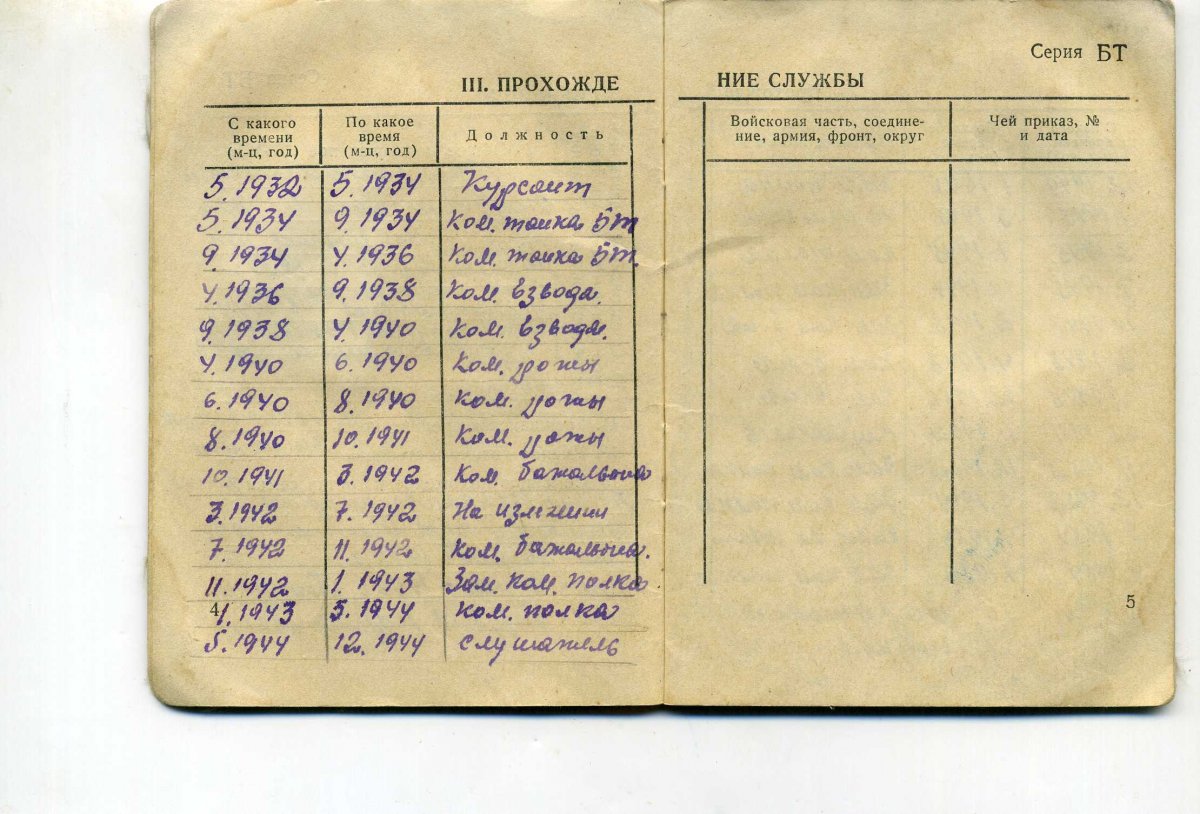 Серия БТ
III. ПРОХОЖДЕНИЕ СЛУЖБЫ
С какого времени (м-ц, год) По какое время (м-ц, год) Должность Войсковая часть, соедине-ние, армия, фронт, округ Чей приказ, № и дата
5.1932 5.1934 Курсант
5.1934 9.1934 Ком. танка БТ
9.1934 4.1936 Ком. танка БТ.
4.1936 9.1938 Ком. взвода.
9.1938 4.1940 Ком. взвода.
4.1940 6.1940 Ком. роты
6.1940 8.1940 Ком. роты
8.1940 10.1941 Ком. роты
10.1941 3.1942 Ком. батальона
3.1942 7.1942 На излечении
7.1942 11.1942 Ком. батальона.
11.1942 1.1943 Зам. ком. полка.
1.1943 5.1944 Ком. полка
5.1944 12.1944 слушатель
4
5